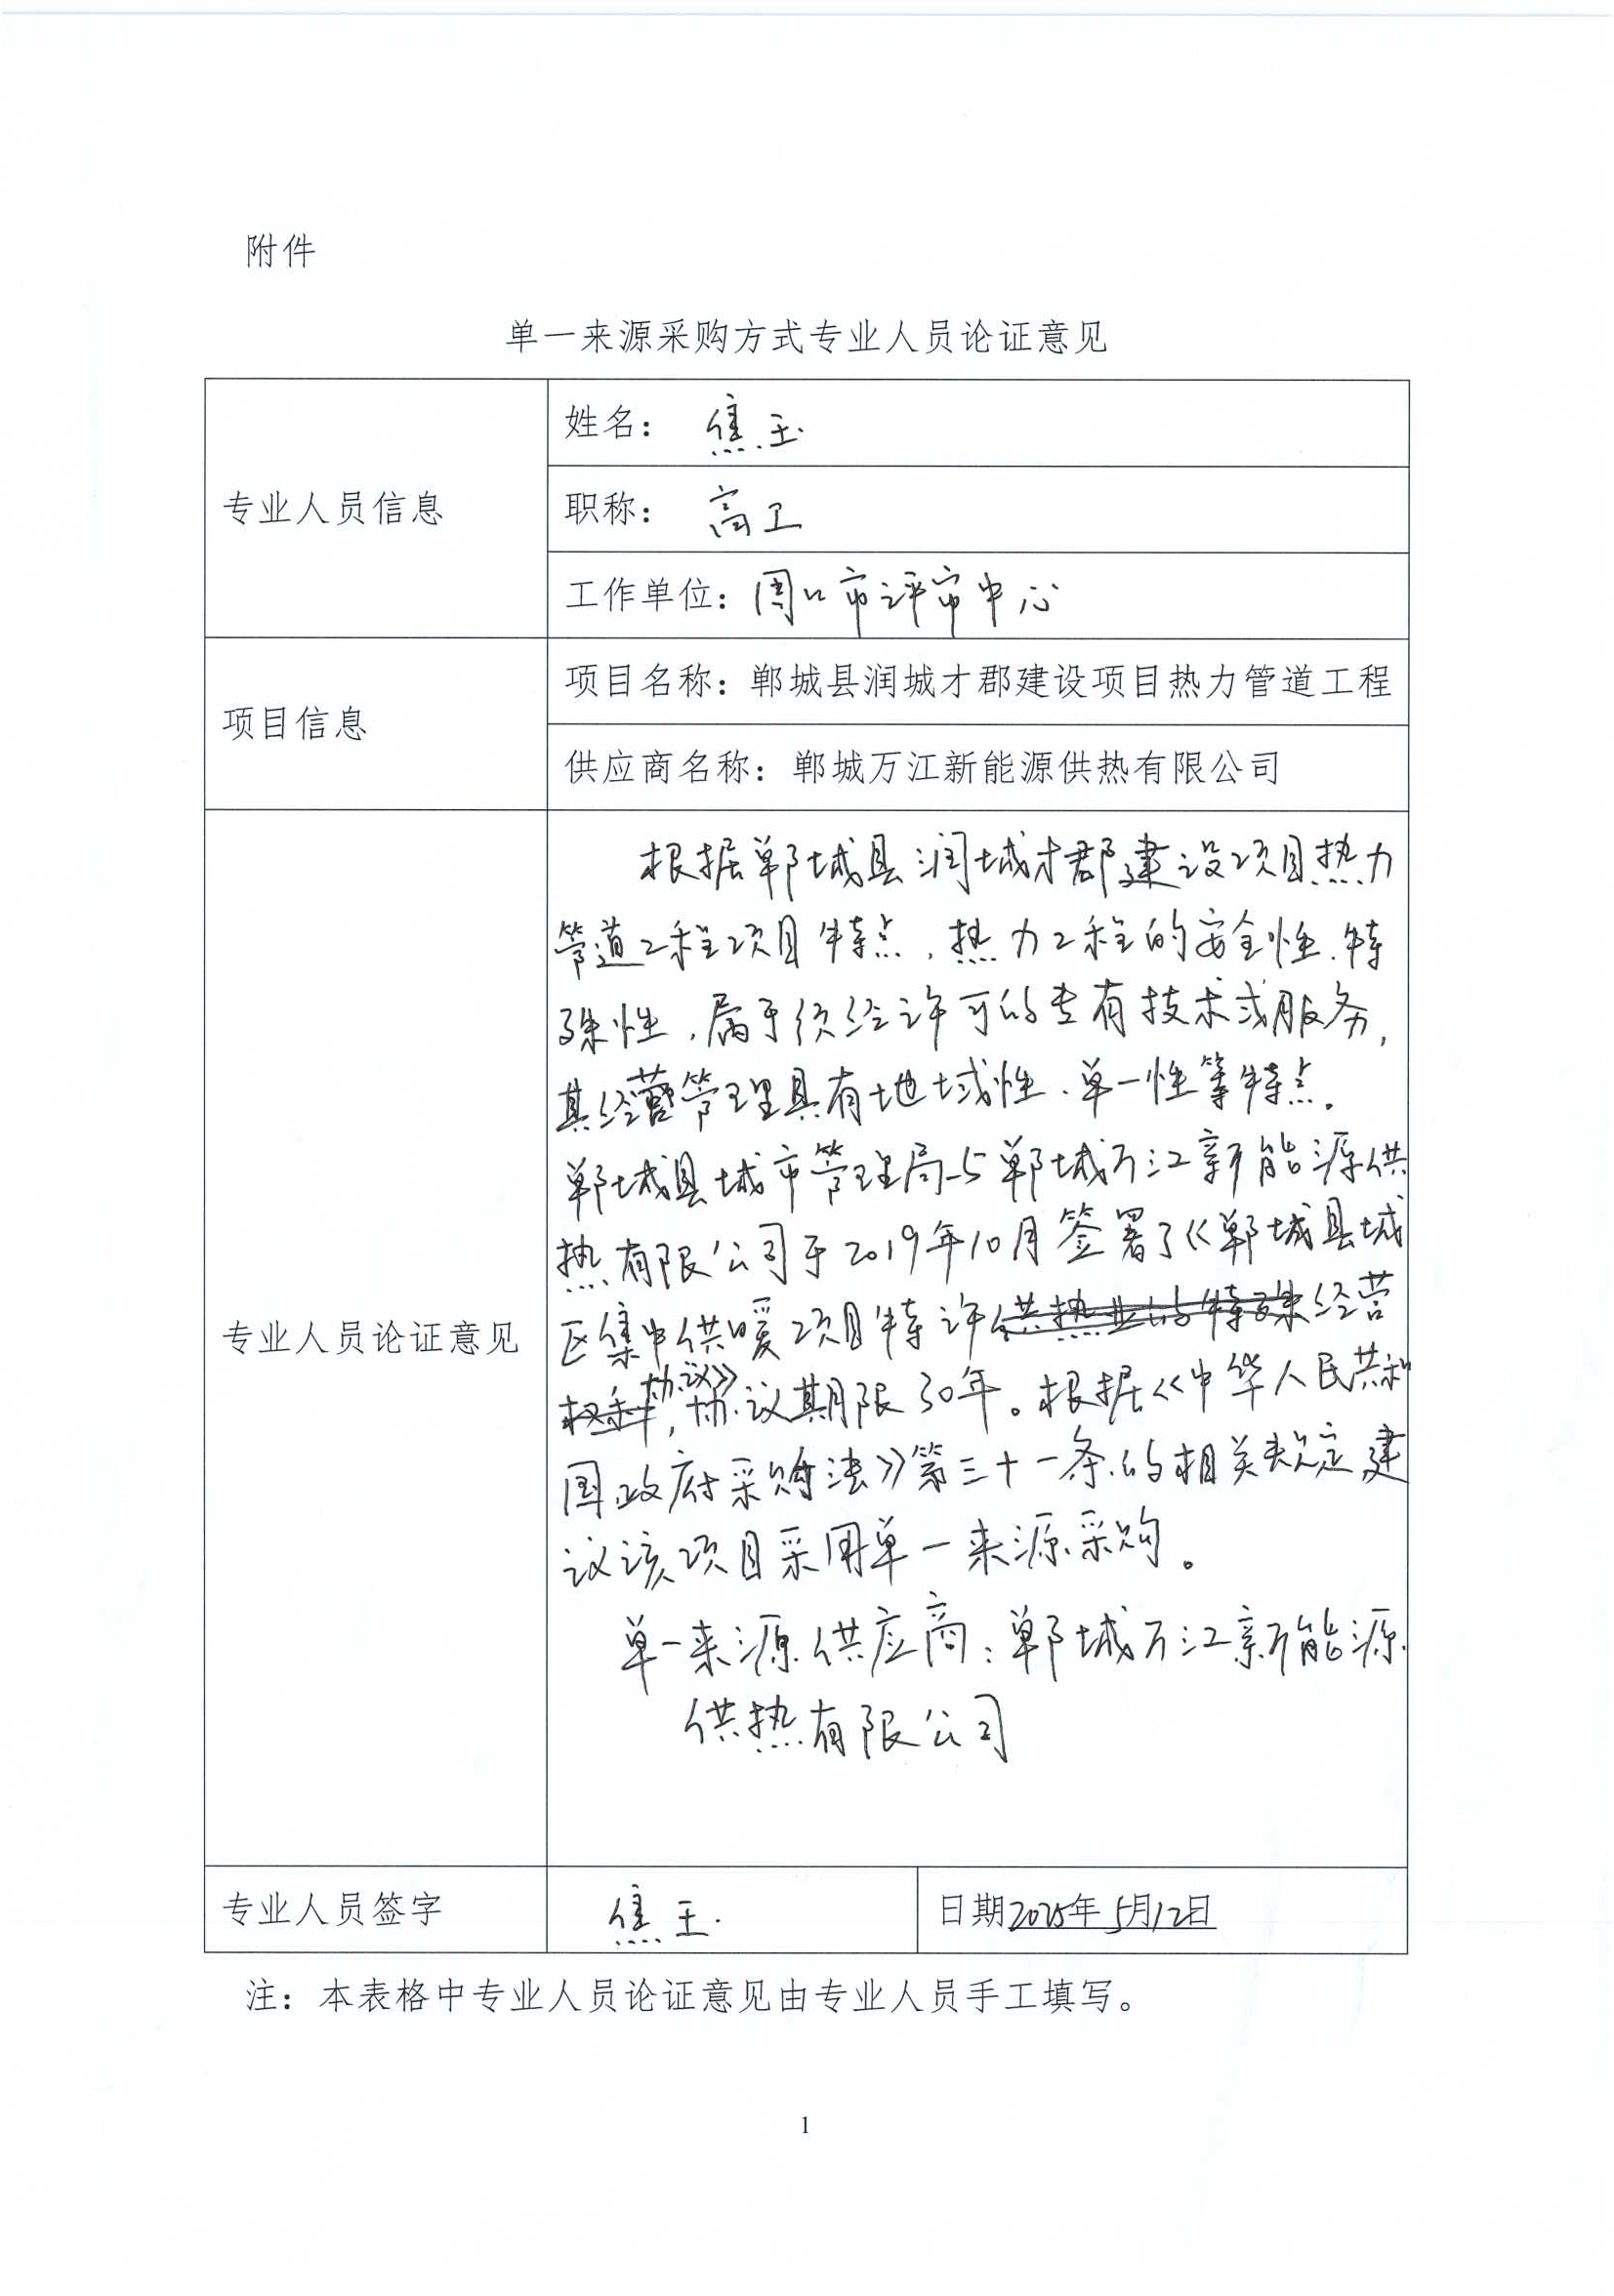 附件
单一来源采购方式专业人员论证意见
专业人员信息
姓名：焦玉
职称：高工
工作单位：周口市评审中心
项目信息
项目名称：郸城县润城才郡建设项目热力管道工程
供应商名称：郸城万江新能源供热有限公司
专业人员论证意见
根据郸城县润城才郡建设项目热力
管道工程项目特点，热力工程的安全性、特
殊性，属于须经许可的专有技术或服务，
其经营管理具有地域性、单一性等特点。
郸城县城市管理局与郸城万江新能源供
热有限公司于2019年10月签署了《郸城县城
区集中供暖项目特许供热业的特殊经营
权利协议》，协议期限30年。根据《中华人民共和
国政府采购法》第三十一条的相关规定建
议该项目采用单一来源采购。
单一来源供应商：郸城万江新能源
供热有限公司
专业人员签字
焦玉
日期2025年5月12日
注：本表格中专业人员论证意见由专业人员手工填写。
1